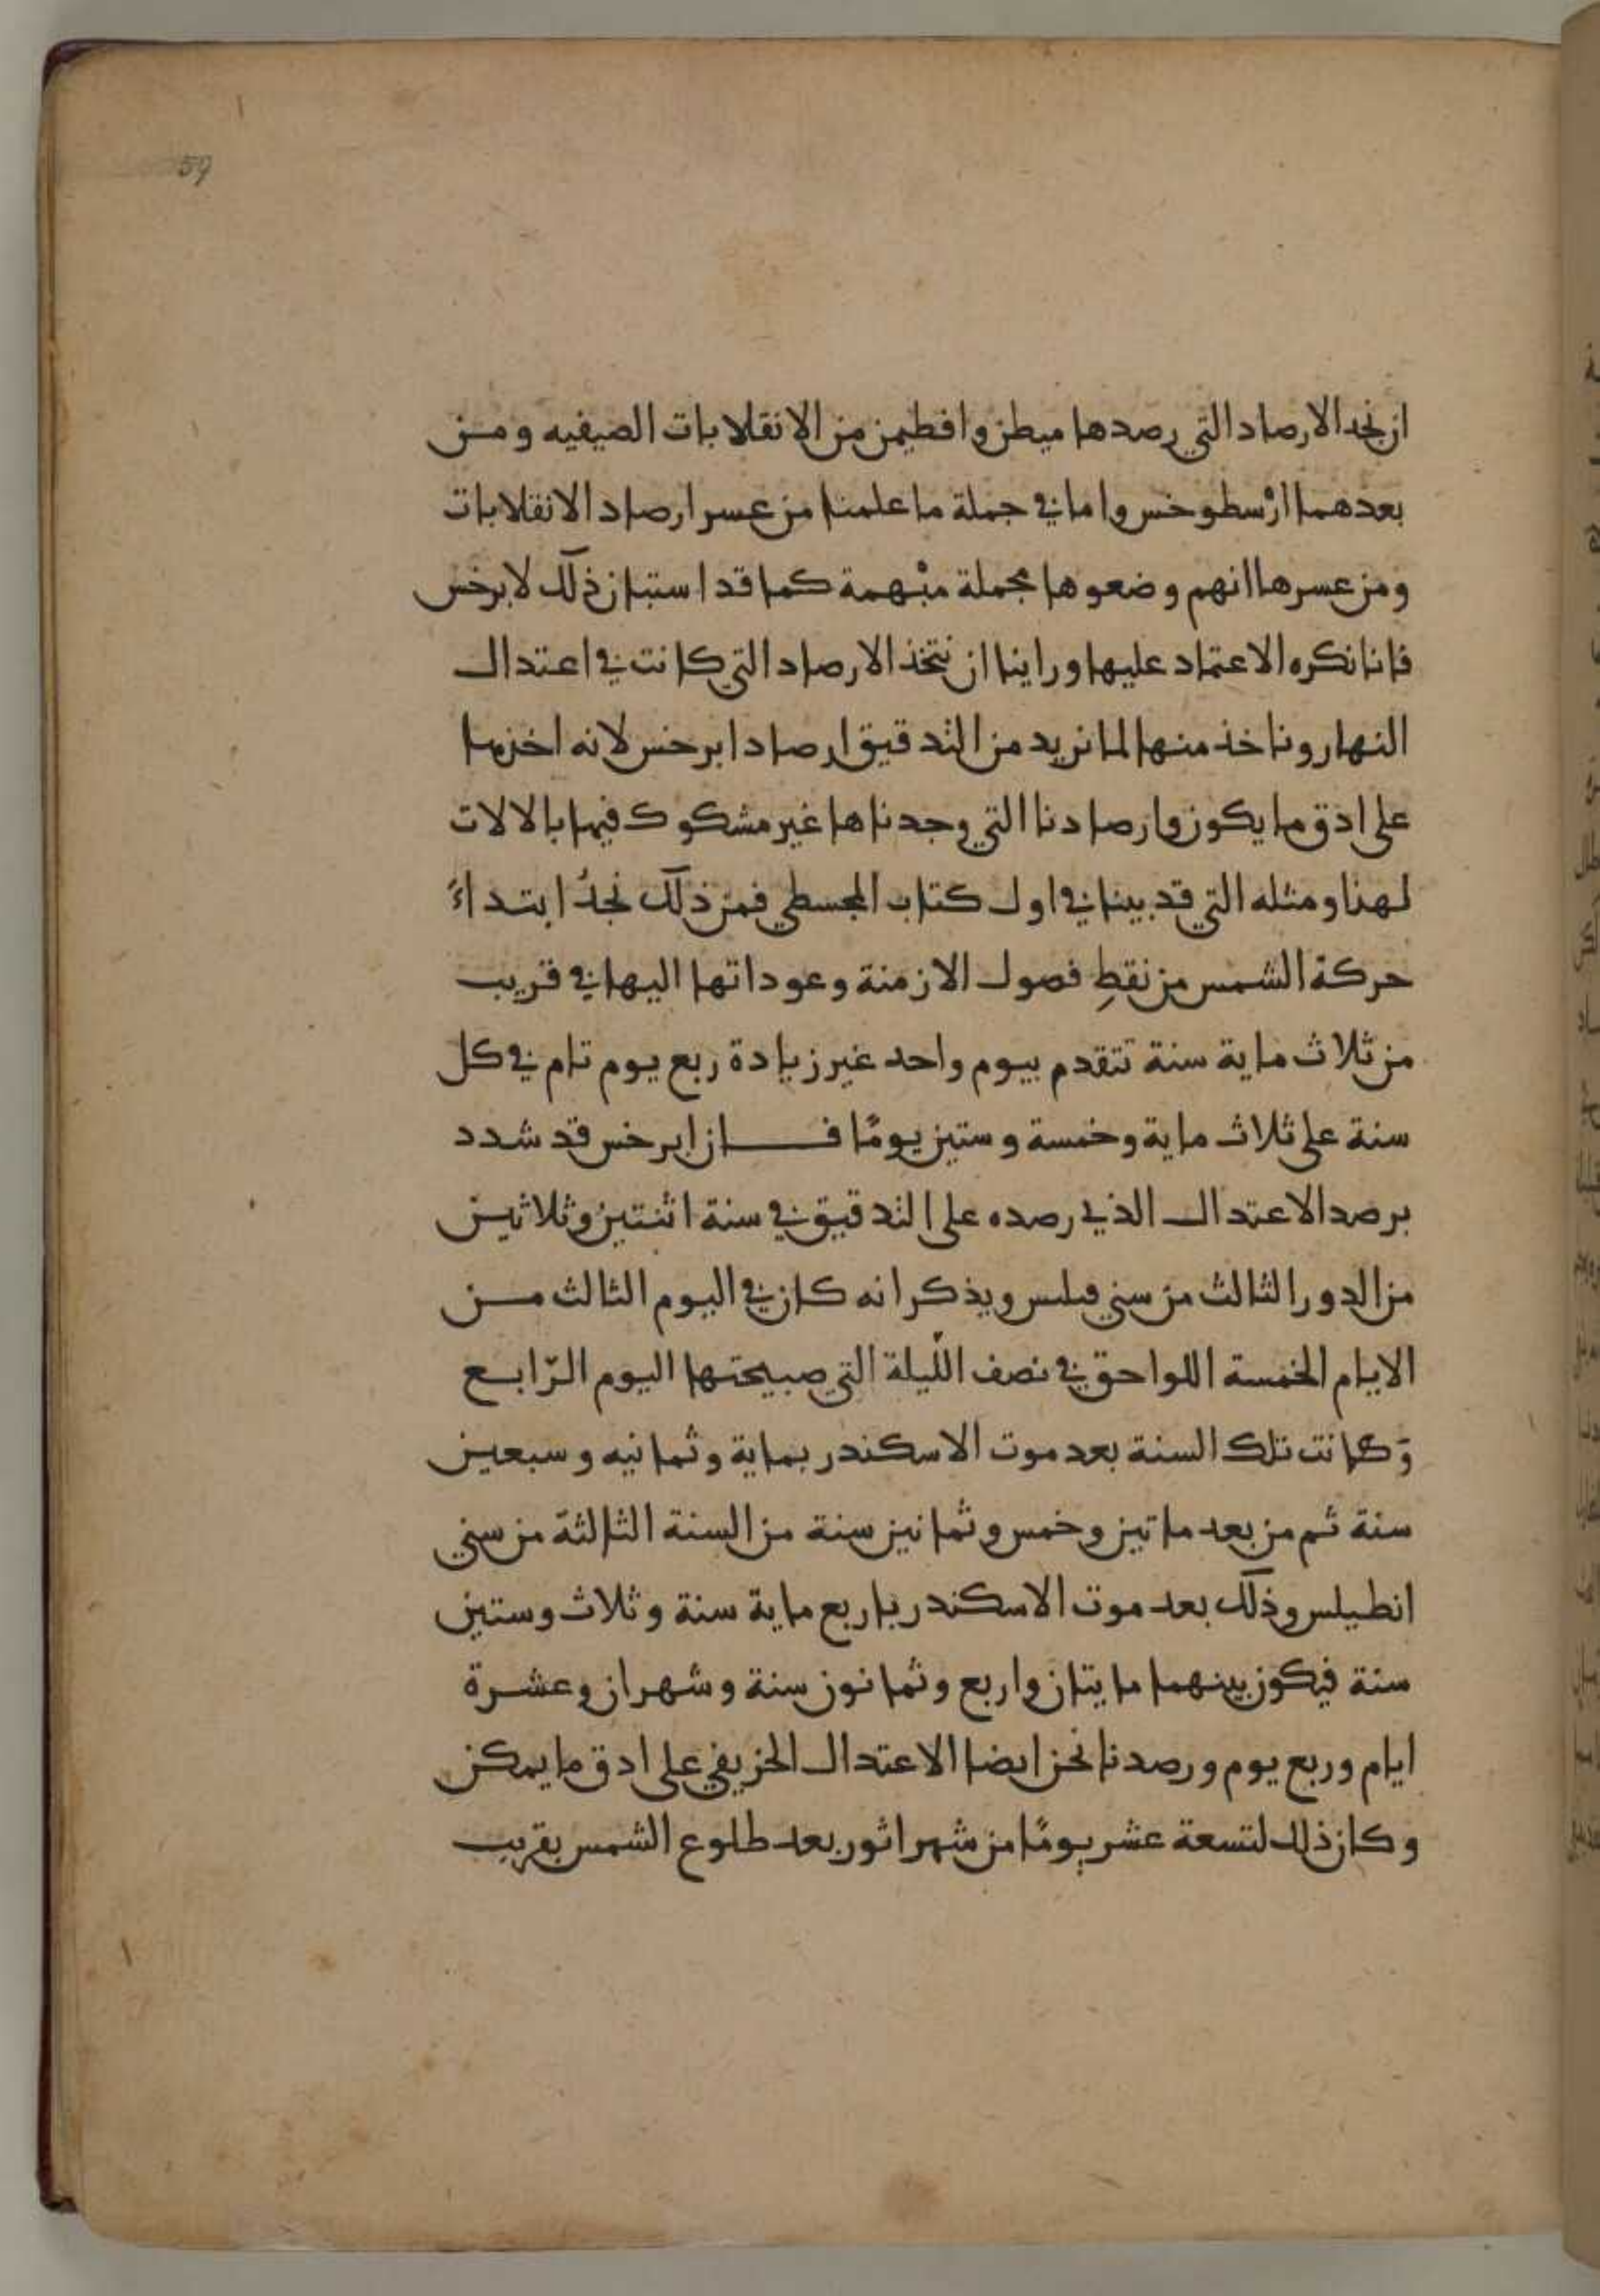 59
ان نجد الارصاد التي رصدها ميطن وافطيمن من الانقلابات الصيفيه ومن
بعدهما ارسطوخس واما في جملة ما علمنا من عسر ارصاد الانقلابات
ومن عسرها انهم وضعوها مجملة مبهمة كما قد استبان ذلك لابرخس
فانا نكره الاعتماد عليها وراينا ان نتخذ الارصاد التي كانت في اعتدال
النهار وناخذ منها لما نريد من التدقيق ارصاد ابرخس لانه اخذها
على ادق ما يكون وارصادنا التي وجدناها غير مشكوك فيها بالالات
لهذا ومثله التي قد بينا في اول كتاب المجسطي فمن ذلك نجدُ ابتداءً
حركة الشمس من نقطِ فصول الازمنة وعوداتها اليها في قريب
من ثلاث ماية سنة تتقدم بيوم واحد غير زيادة ربع يوم تام في كل
سنة على ثلاث ماية وخمسة وستين يومًا فان ابرخس قد شدد
برصد الاعتدال الذي رصده على التدقيق في سنة اثنتين وثلاثين
من الدور الثالث من سني فيلبس ويذكر انه كان في اليوم الثالث من
الايام الخمسة اللواحق في نصف اللّيلة التي صبيحتها اليوم الرّابع
وَكانت تلك السنة بعد موت الاسكندر بماية وثمانيه وسبعين
سنة ثم من بعد ماتين وخمس وثمانين سنة من السنة الثالثة من سني
انطيلس وذلك بعد موت الاسكندر باربع ماية سنة وثلاث وستين
سنة فيكون بينهما مايتان واربع وثمانون سنة وشهران وعشرة
ايام وربع يوم ورصدنا نحن ايضا الاعتدال الخريفي على ادق ما يمكن
وكان ذلك لتسعة عشر يومًا من شهر اثور بعد طلوع الشمس بقريب